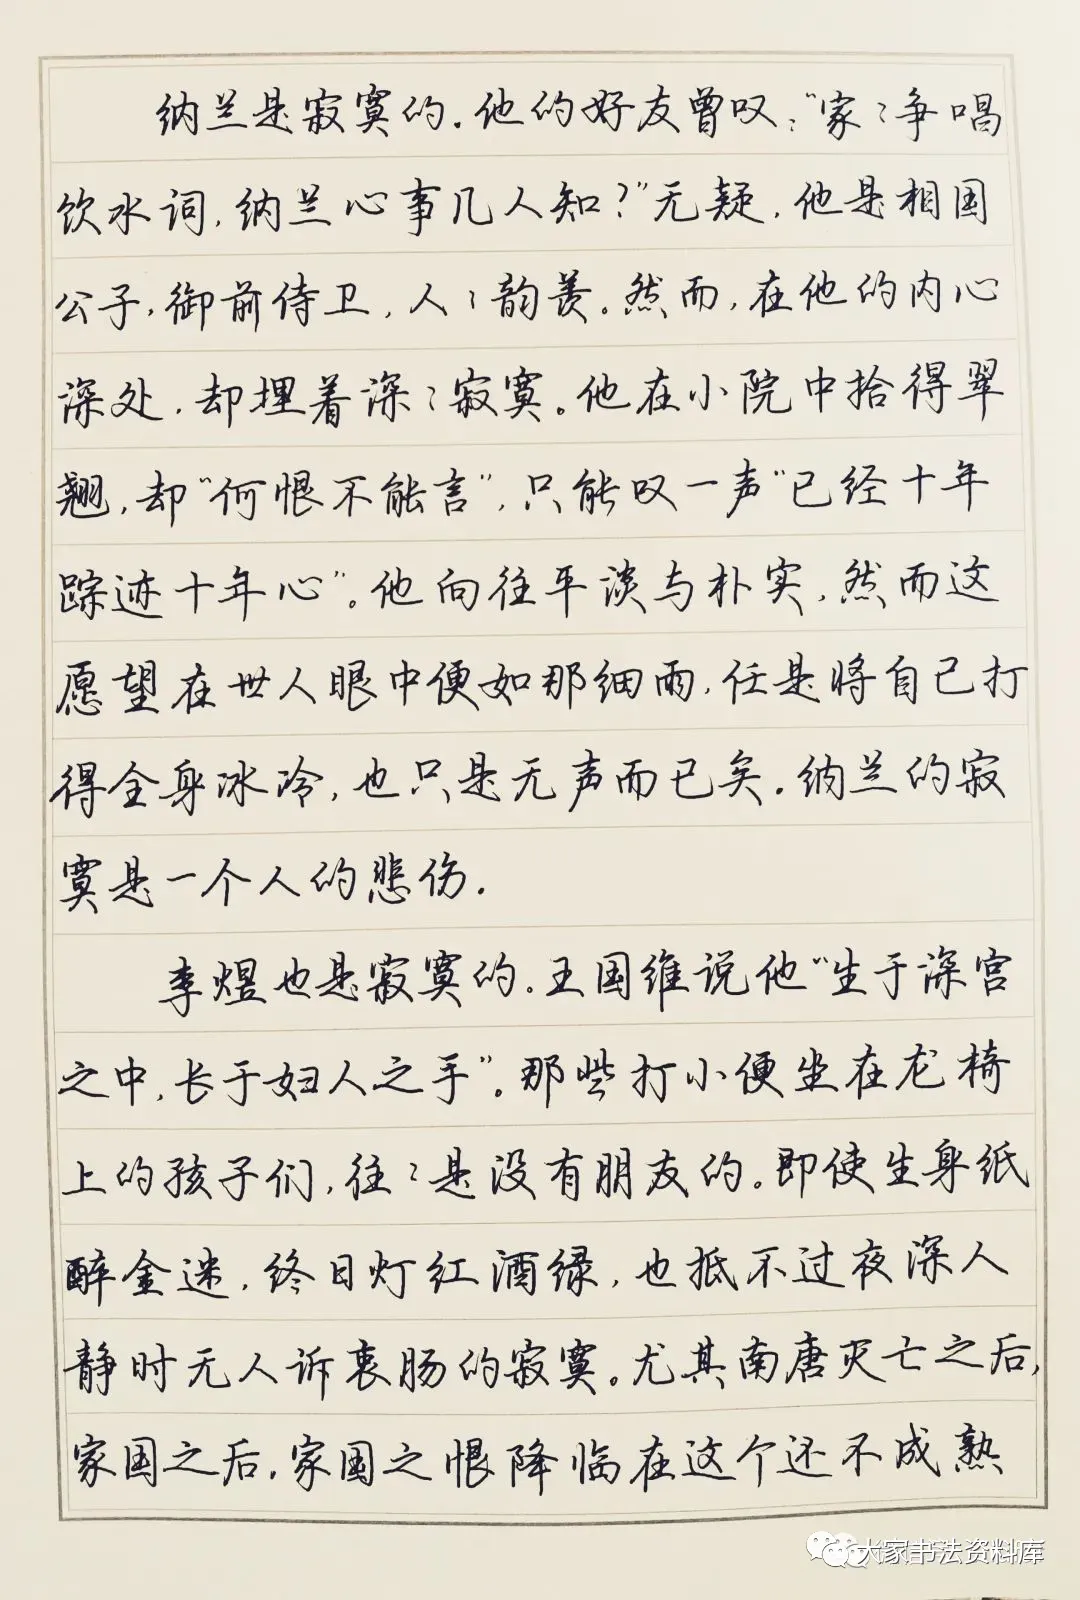 纳兰是寂寞的。他的好友曾叹:“家〻争唱
饮水词,纳兰心事几人知?”无疑,他是相国
公子,御前侍卫,人〻韵羡。然而,在他的内心
深处,却埋着深〻寂寞。他在小院中拾得翠
翘,却“何恨不能言”,只能叹一声“已经十年
踪迹十年心”。他向往平淡与朴实,然而这
愿望在世人眼中便如那细雨,任是将自己打
得全身冰冷,也只是无声而已矣。纳兰的寂
寞是一个人的悲伤.
李煜也是寂寞的。王国维说他“生于深宫
之中,长于妇人之手”。那些打小便坐在龙椅
上的孩子们,往〻是没有朋友的。即使生身纸
醉金迷,终日灯红酒绿,也抵不过夜深人
静时无人诉衷肠的寂寞。尤其南唐灭亡之后,
家国之后,家国之恨降临在这个还不成熟
大家书法资料库